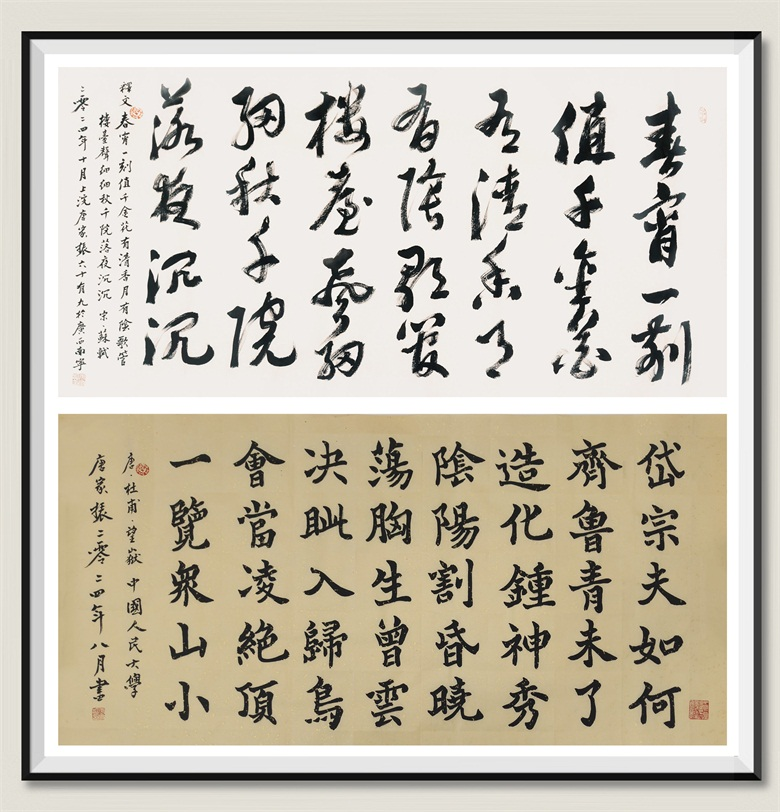 春宵一刻
值千金花
有清香月
有陰歌管
楼臺聲細
細秋千院
落夜沉沉
釋文 春宵一刻值千金花有清香月有陰歌管
樓臺聲細細秋千院落夜沉沉 宋·蘇軾
二零二四年十月上浣唐家振六十有九於廣西南寧
岱宗夫如何
齊魯青未了
造化鍾神秀
陰陽割昏曉
蕩胸生曾雲
决眦入歸鳥
會當凌絕頂
一覽衆山小
唐·杜甫·望嶽 中國人民大學
唐家振二零二四年八月書